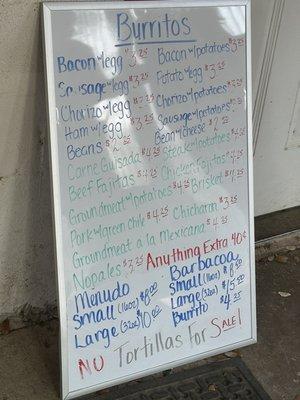 Burritos
Bacon w/egg $3.25 Bacon w/potatoes $3.25
Sausage w/egg $3.25 Potato w/egg $3.25
Chorizo w/egg $3.25 Chorizo w/potatoes $3.25
Ham w/egg $3.25 Sausage w/potatoes
Beans $2 Bean w/cheese $2
Carne Guisada $4.25 Steak w/potatoes
Beef Fajitas $4.25 Chicken Fajitas $4.25
Groundmeat w/potatoes $4.25 Brisket
Pork w/green chile $4.25 Chicharon $3.25
Groundmeat a la Mexicana $4.25
Nopales $3.25 Anything Extra 40¢
Menudo Barbacoa
Small (16oz) $8.00 Small (16oz) $8.50
Large (32oz) 10.00 Large (32oz) $15.50
Burrito $4.25
NU Tortillas For SALE!